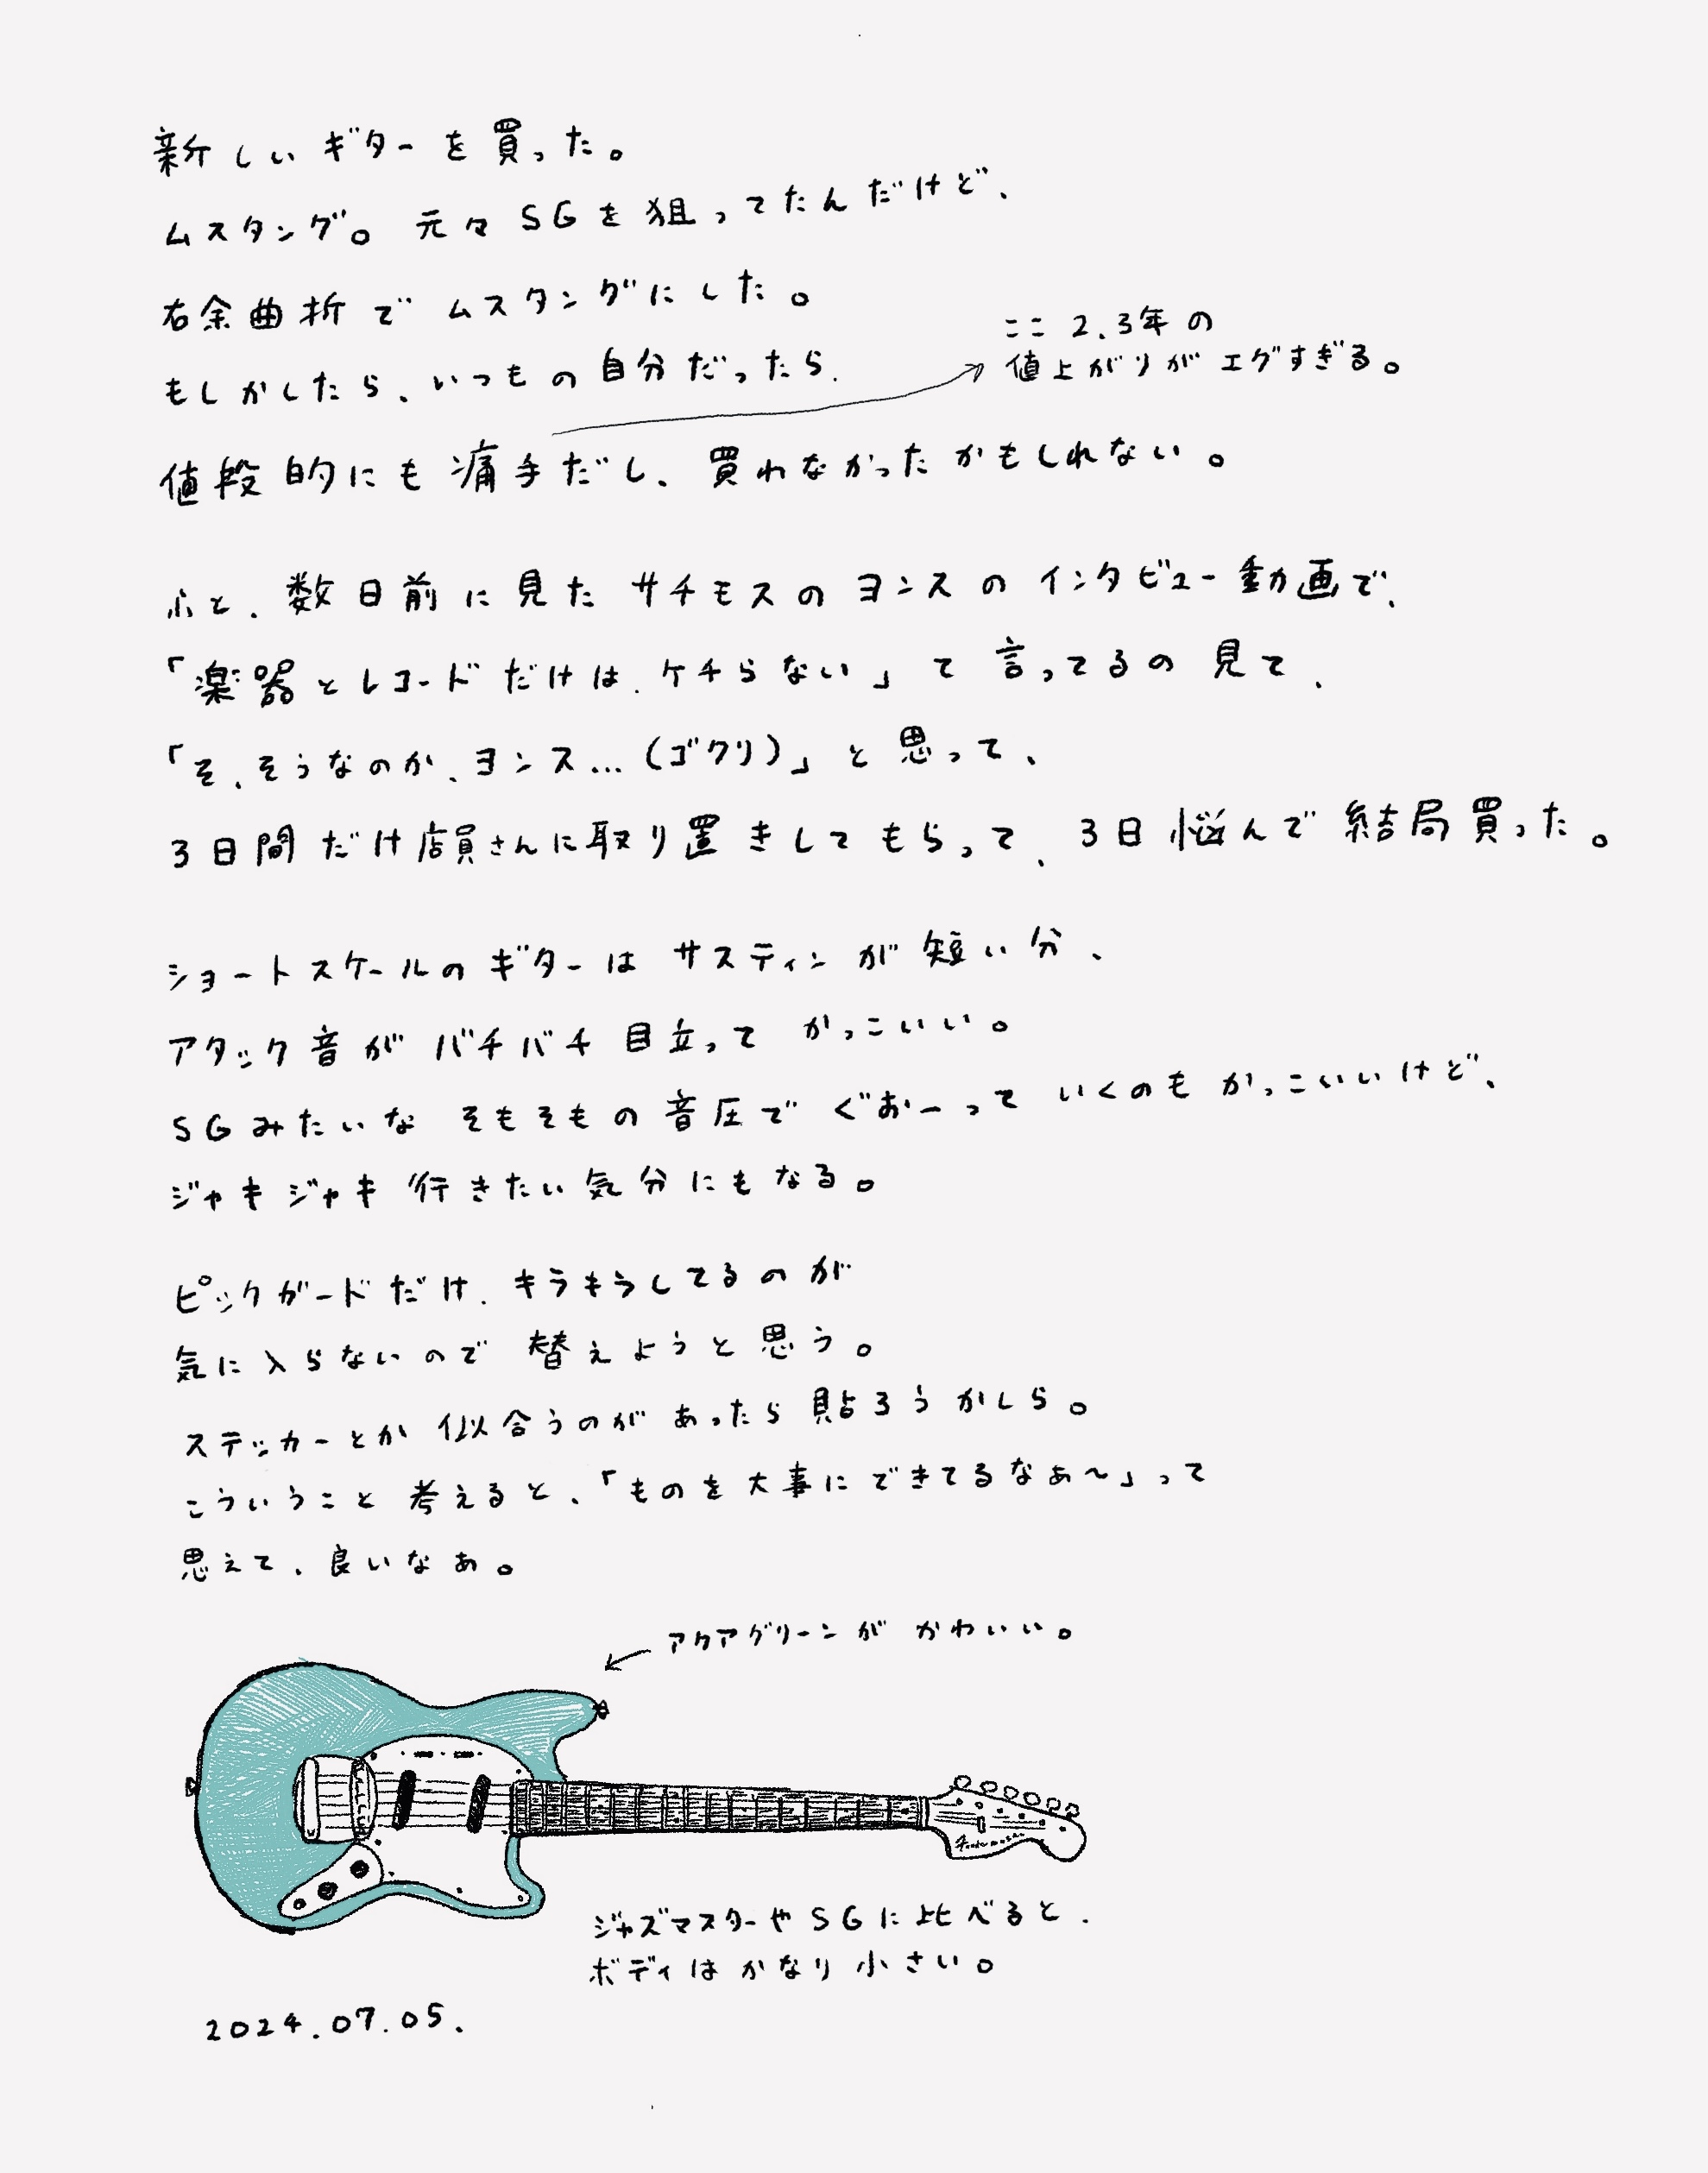 新しいギターを買った。
ムスタング。元々SGを狙ってたんだけど、
右余曲折でムスタングにした。
もしかしたら、いつもの自分だったら、
ここ2、3年の
値上がりがエグすぎる。
値段的にも痛手だし、買わなかったかもしれない。
ふと、数日前に見たサチモスのヨンスのインタビュー動画で、
「楽器とレコードだけは、ケチらない」て言ってるの見て、
「そ、そうなのか、ヨンス…（ゴクリ）」と思って、
3日間だけ店員さんに取り置きしてもらって、3日悩んで結局買った。
ショートスケールのギターはサスティンが短い分、
アタック音がバチバチ目立ってかっこいい。
SGみたいなそもそもの音圧でぐおーっていくのもかっこいいけど、
ジャキジャキ行きたい気分にもなる。
ピックガードだけ、キラキラしてるのが
気に入らないので替えようと思う。
ステッカーとか似合うのがあったら貼ろうかしら。
こういうこと考えると、「ものを大事にできてるなぁ〜」って
思えて、良いなぁ。
アクアグリーンがかわいい。
ジャズマスターやSGに比べると、
ボディはかなり小さい。
2024.07.05.